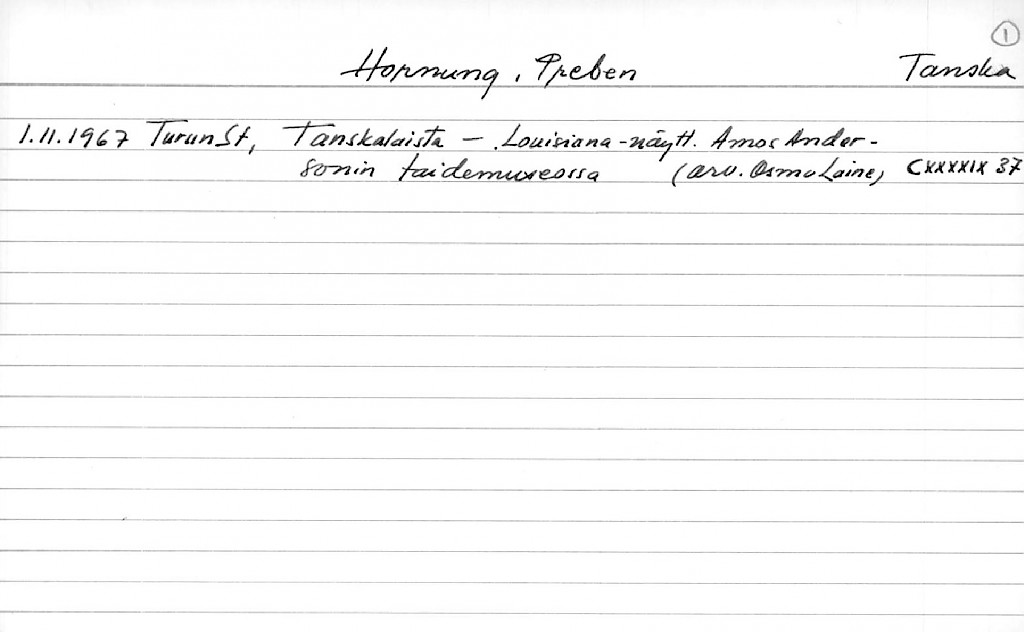 1
Hornung, Preben Tanska
1.11.1967 Turun St, Tanskalaista – Louisiana-näytt. Amos Ander-
sonin taidemuseossa (arv. Osmo Laine) CXXXXIX 37